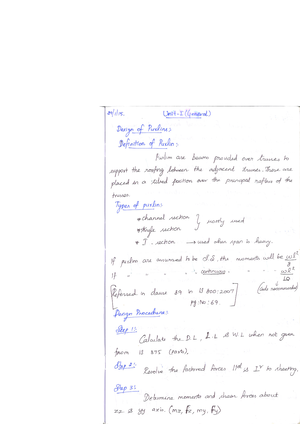 Unit-I (Continued)
Design of Purlins:
Definition of Purlin:
Purlin are beams provided over trusses to
support the roofing between the adjacent trusses. These are
placed in a tilted position over the principal rafters of the
trusses.
Types of purlin:
* channel section
* Angle section } mostly used
* I - section → used when span is heavy.
If purlins are assumed to be S.S, the moments will be wl²/8
If " " " " continuous - " " " wl²/10
[Referred in clause 8.9. in IS 800:2007 (Code recommended)
pg No: 69.]
Design Procedure:
Step 1:
Calculate the D.L, L.L & W.L when not given
from IS 875 (parts).
Step 2:
Resolve the factored forces 11el & Ir to sheeting.
Step 3:
Determine moments and shear forces about
zz & yy axis. (mz, Fz, my, Fy)